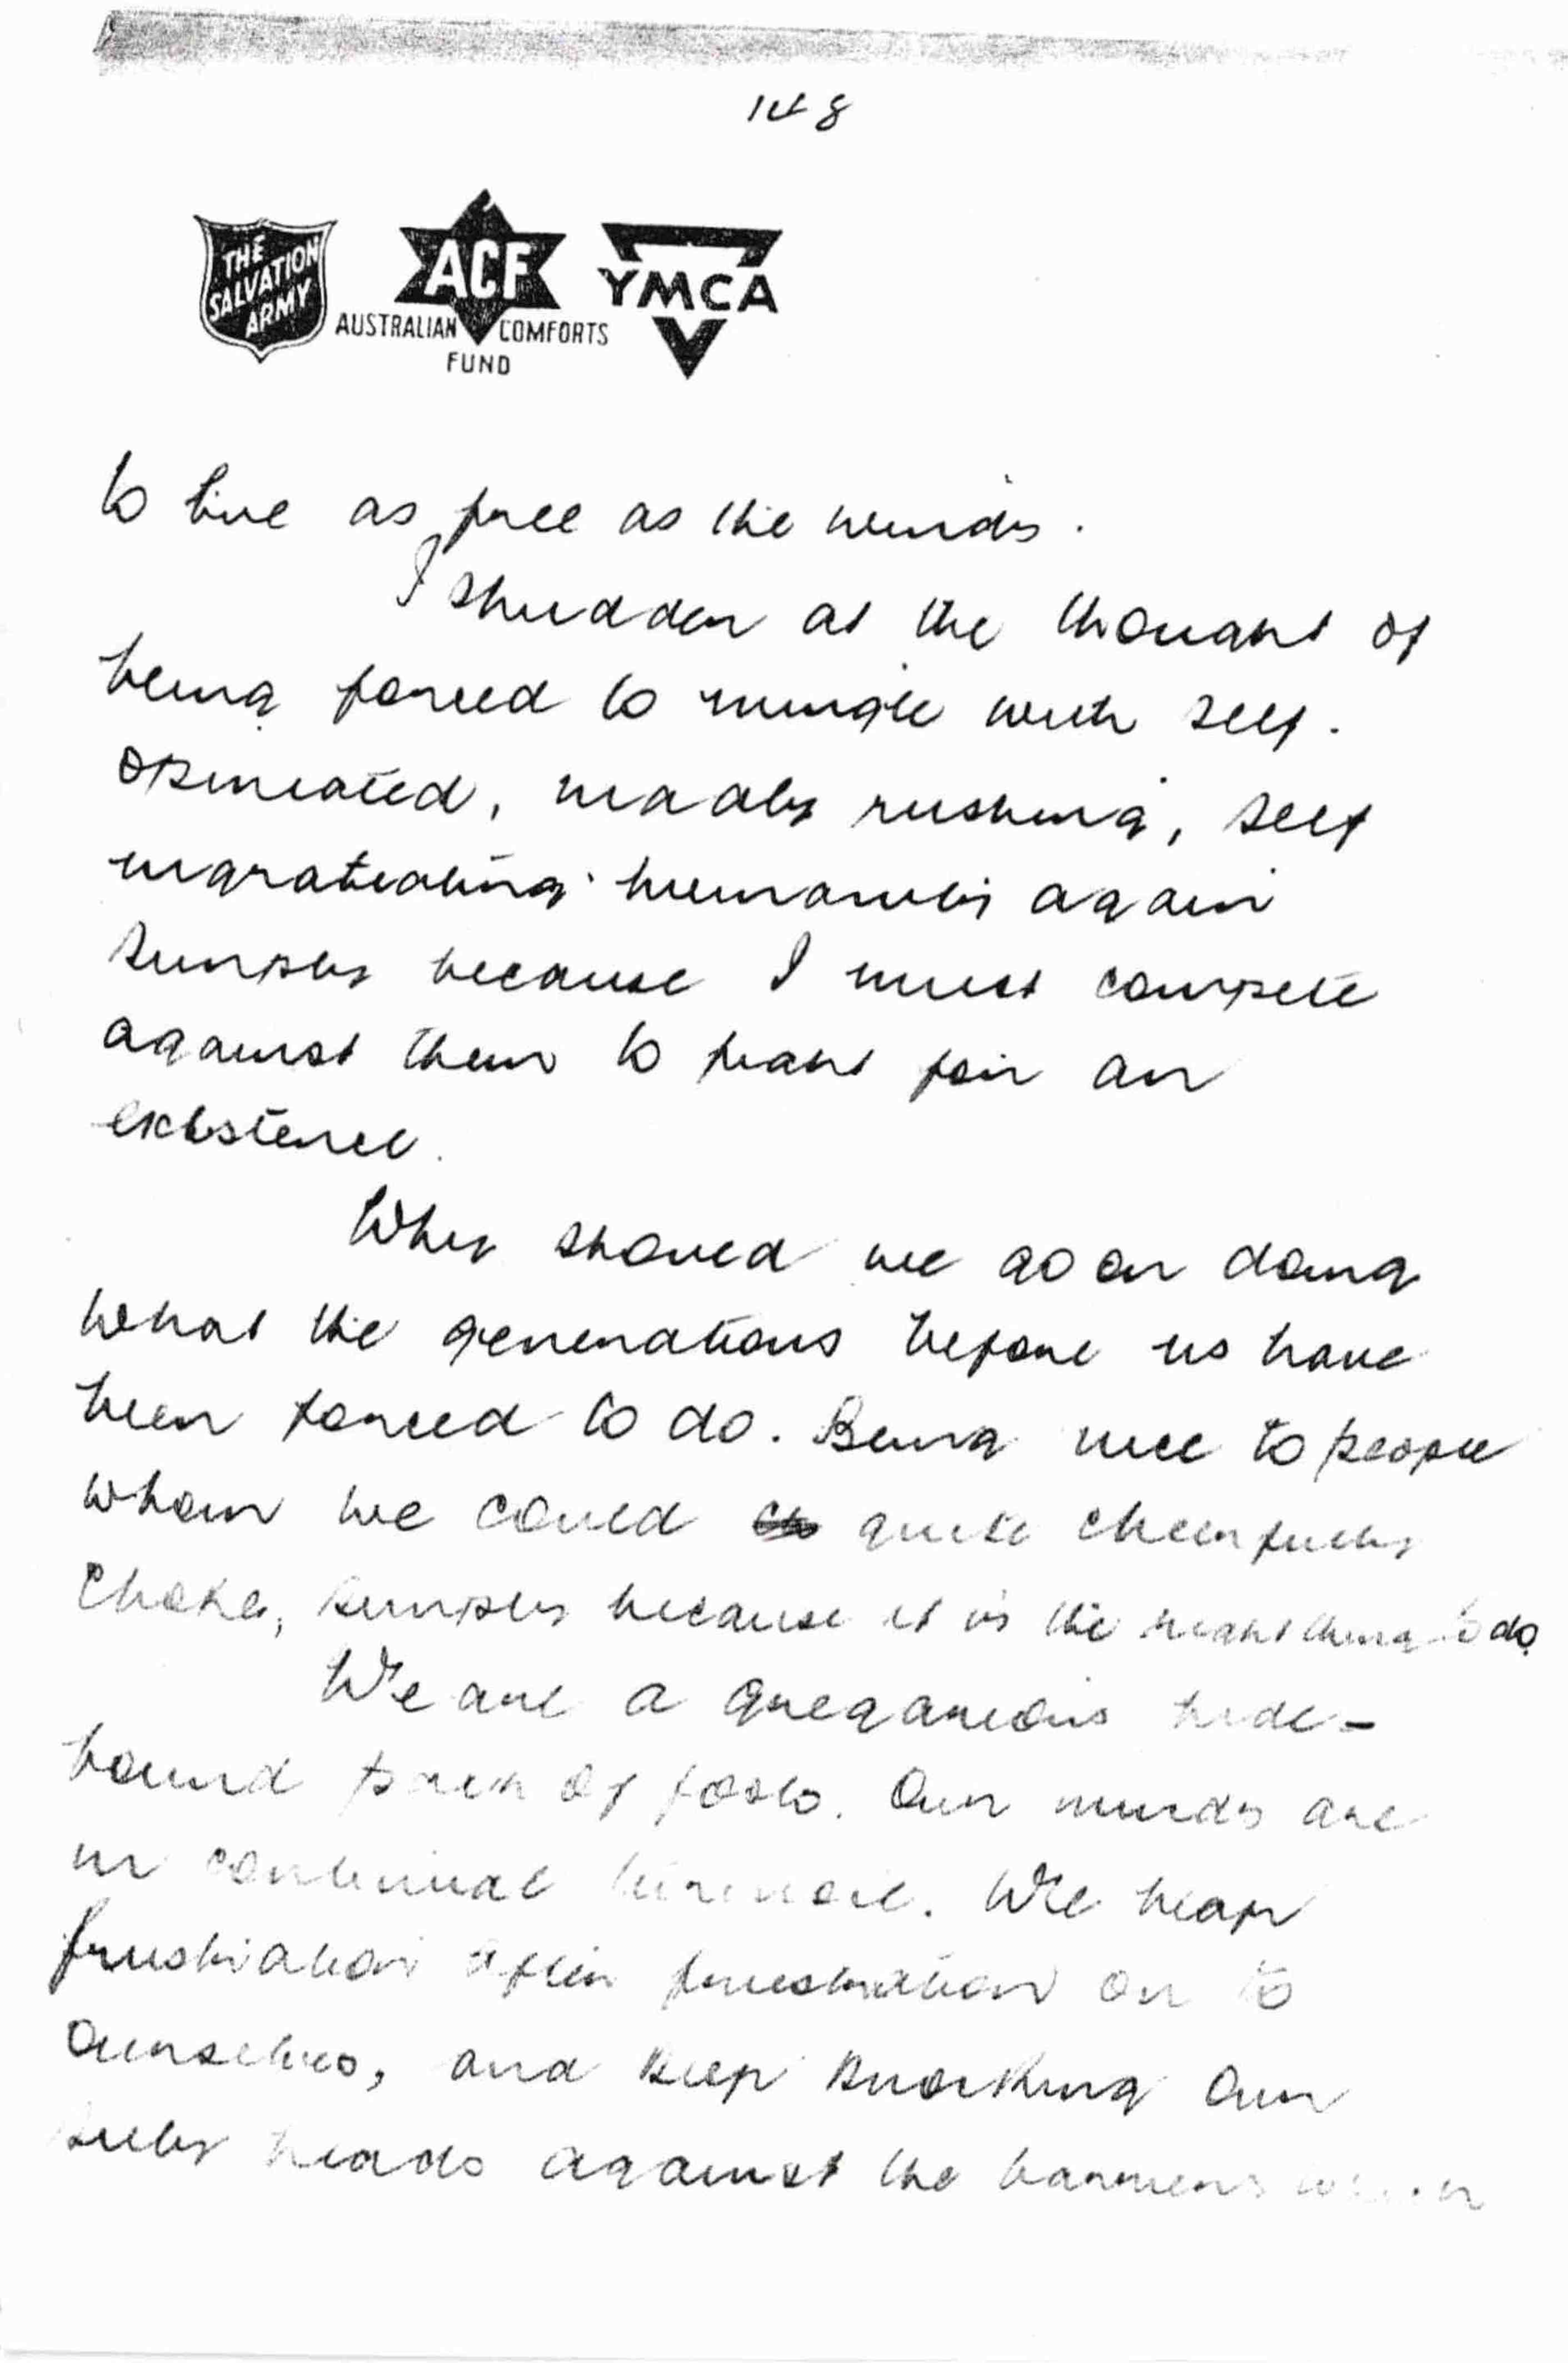 148
THE
SALVATION
ARMY
ACF
AUSTRALIAN COMFORTS
FUND
YMCA
to live as free as the winds.
I shudder at the thought of
being forced to mingle with self.
opinionated, madly rushing, self
ingratiating humanity again
simply because I must compete
against them to fight for an
existence.
Why should we go on doing
what the generations before us have
been forced to do. Being nice to people
whom we could quite cheerfully
choke, simply because it is the right thing to do.
We are a gregarious hide-
bound pack of fools. Our minds are
in continual turmoil. We heap
frustration after frustration on to
ourselves, and keep knocking our
silly heads against the barriers which